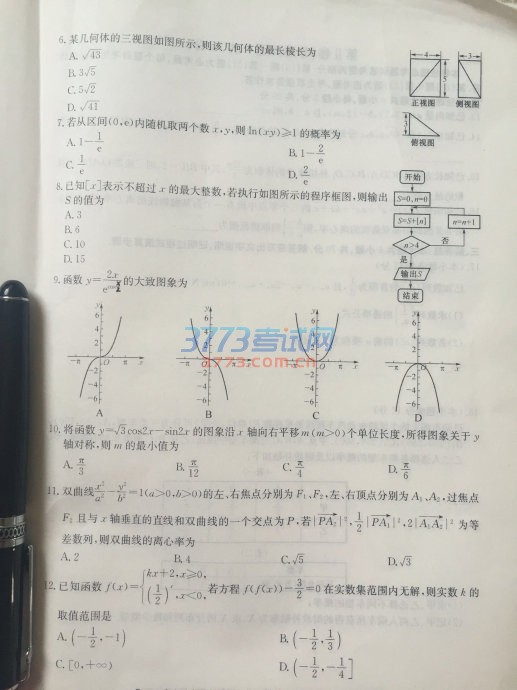 6. 某几何体的三视图如图所示,则该几何体的最长棱长为
A. √43
B. 3√5
C. 5√2
D. √41
4 3
5
正视图 侧视图
3
俯视图
7. 若从区间(0,e)内随机取两个数 x,y,则 ln(xy)≥1 的概率为
A. 1-1/e B. 1-2/e
C. 1/e D. 2/e
8. 已知[x]表示不超过 x 的最大整数,若执行如图所示的程序框图,则输出
S 的值为
A. 3
B. 6
C. 10
D. 15
开始
S=0, n=0
S=S+[n] n=n+1
n>4 否
是
输出S
结束
9. 函数 y= 的大致图象为
3773考试网
3773.com.cn
A B C D
10. 将函数 y=√3cos2x-sin2x 的图象沿 x 轴向右平移 m(m>0)个单位长度,所得图象关于 y
轴对称,则 m 的最小值为
A. π/3 B. π/12 C. π/4 D. π/6
11. 双曲线x²/a²-y²/b²=1(a>0,b>0)的左、右焦点分别为 F₁、F₂,左、右顶点分别为 A₁、A₂,过焦点
F₂ 且与 x 轴垂直的直线和双曲线的一个交点为 P,若|PA₂|²,1/2|PA₁|²,2|A₁A₂|² 为等
差数列,则双曲线的离心率为
A. 2 B. 4 C. √5 D. √3
12. 已知函数 f(x)={kx+2,x≥0, (1/2)ˣ,x<0, 若方程 f(f(x))-3/2=0 在实数集范围内无解,则实数 k 的
取值范围是
A. (-1/2,-1) B. (-1/2,1/3)
C. [0,+∞) D. (-1/2,-1/4]